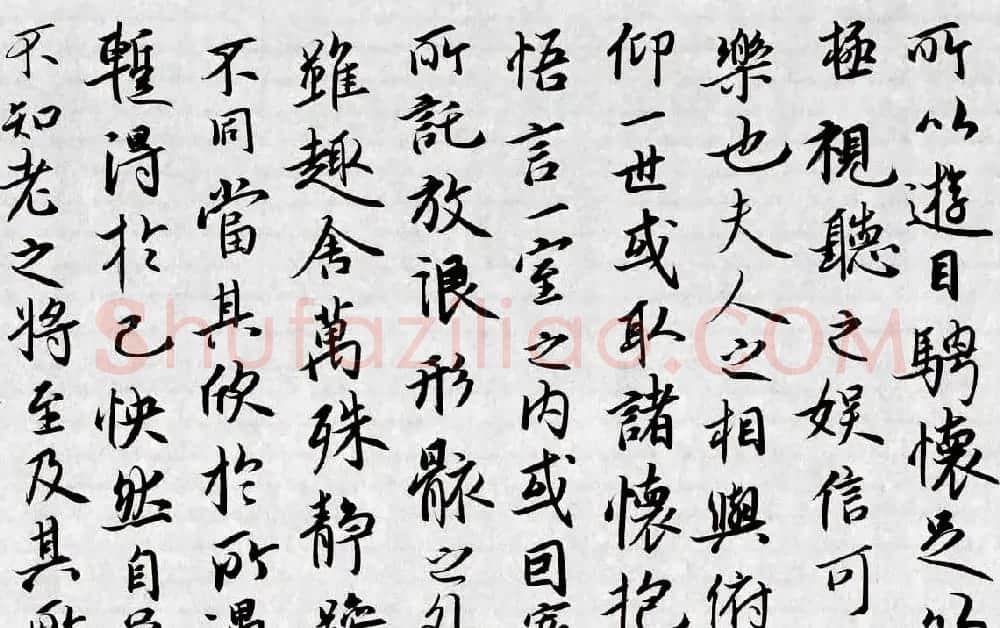 所以遊目騁懷足以
極視聽之娛信可
樂也夫人之相與俯
仰一世或取諸懷抱
悟言一室之内或因寄
所託放浪形骸之外
雖趣舍萬殊静躁
不同當其欣於所遇
暫得於己怏然自足
不知老之将至及其所
Shufaziliao.COM